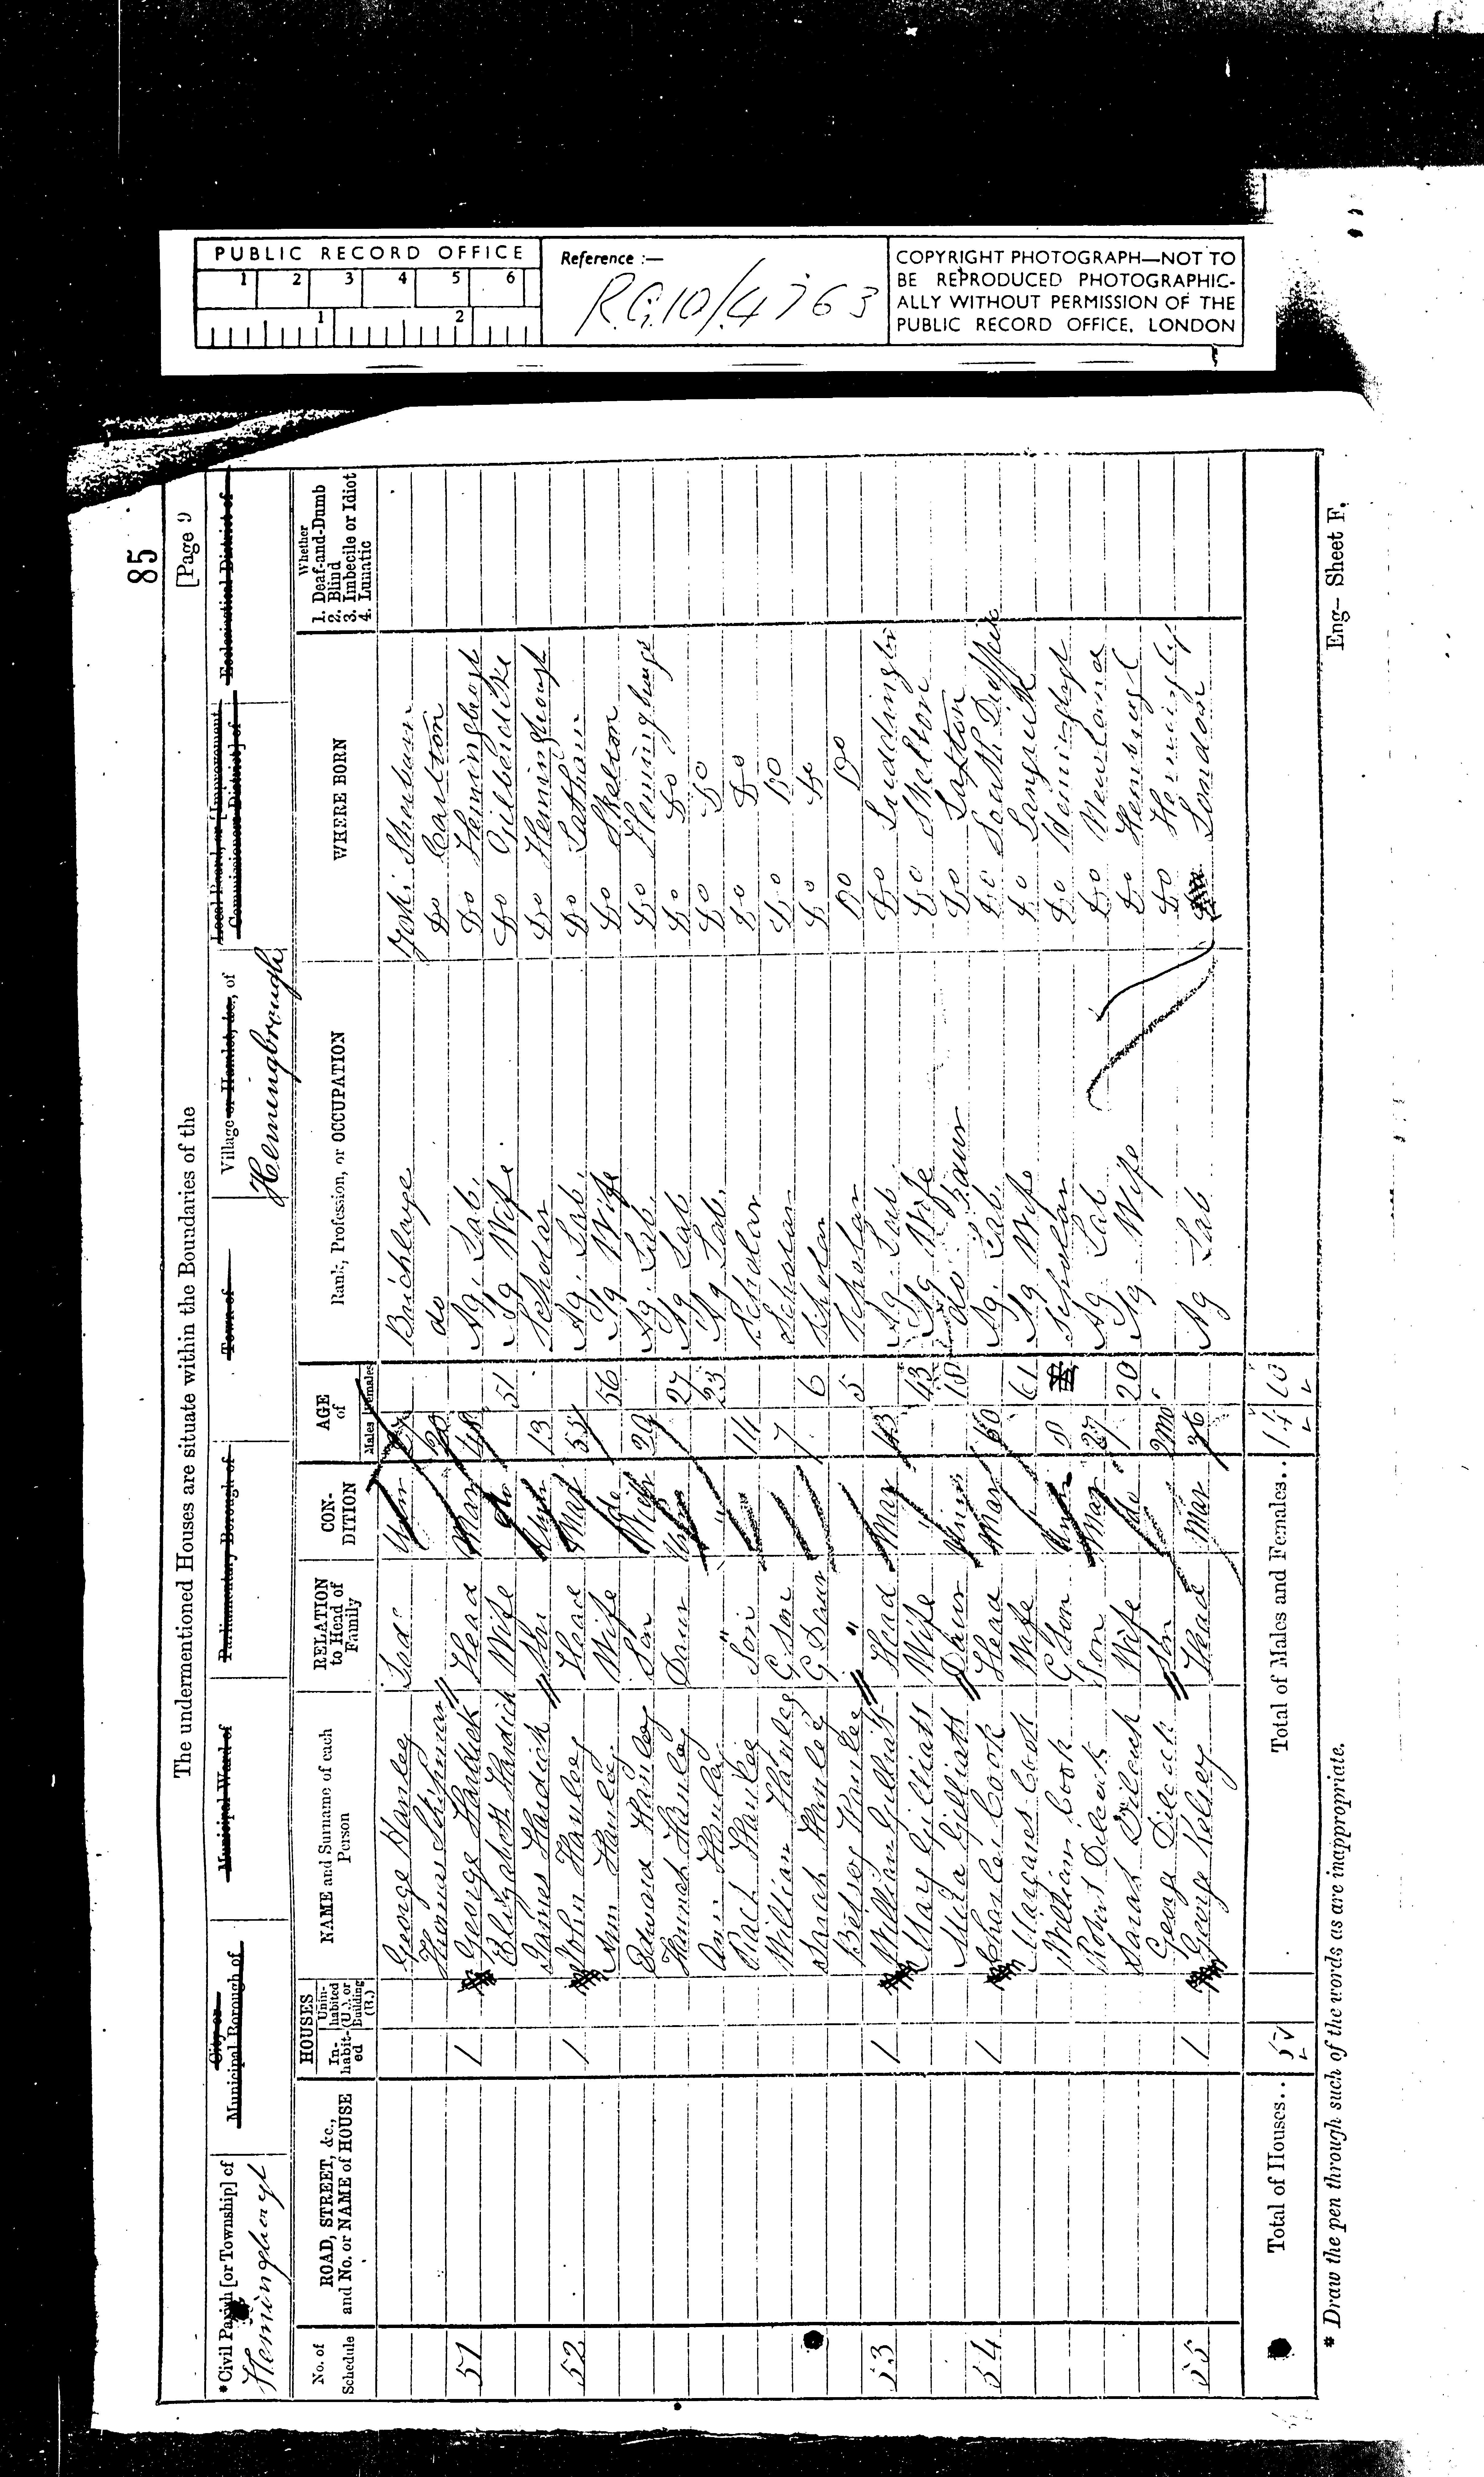 PUBLIC RECORD OFFICE
1 2 3 4 5 6
1 2
Reference :—
R.G.10/4763
COPYRIGHT PHOTOGRAPH—NOT TO
BE REPRODUCED PHOTOGRAPHIC-
ALLY WITHOUT PERMISSION OF THE
PUBLIC RECORD OFFICE, LONDON
85
The undermentioned Houses are situate within the Boundaries of the [Page 9
*Civil Parish [or Township] of City or Municipal Borough of Municipal Ward of Parliamentary Borough of Town of Village or Hamlet, &c., of Local Board, or [Improvement Commissioners District] of Ecclesiastical District of
Hemingbrough Hemingbrough
No. of Schedule ROAD, STREET, &c., and No. or NAME of HOUSE HOUSES Inhabited Uninhabited (U.), or Building (B.) NAME and Surname of each Person RELATION to Head of Family CONDITION AGE of Males Females Rank, Profession, or OCCUPATION WHERE BORN Whether 1. Deaf-and-Dumb 2. Blind 3. Imbecile or Idiot 4. Lunatic
George Unm
do Do Carlton
51 1 George Hardick Head Mar 48 Ag. Lab. Do Hemingbrough
Elizabeth Hardick Wife do 51 Ag Wife Do Gilberdike
James Hardick Son Unm 13 Scholar Do Hemingbrough
52 1 John Hanley Head Mar Ag. Lab. Do
Ann Hanley Wife do 56 Ag Wife Do Skelton
Edward Hanley Son 29 Ag. Lab. Do Hemingbrough
Hannah Hanley Daur Unm 27 Ag Lab Do Do
Ann Hanley " " 23 Ag Lab. Do Do
Hanley Son 14 Scholar Do Do
William Hanley G. Son 7 Scholar Do Do
Sarah Hanley G. Daur 6 Scholar Do Do
Betsey Hanley " 5 Scholar Do Do
53 1 William Gilliatt Head Mar 43 Ag. Lab Do Luddington
Mary Gilliatt Wife " 43 Ag Wife Do Skelton
Gilliatt Daur Unm 18 do Daur Do Laxton
54 1 Charles Cook Head Mar 60 Ag. Lab. Do South
Margaret Cook Wife 61 Ag Wife Do Langrick
William Cook G Son Unm 8 Scholar Do
Robert Dilcock Son Mar 27 Ag. Lab Do Newland
Sarah Dilcock Wife do 20 Ag Wife Do
George Dilcock Son 2mo Do
55 1 George Kelsey Head Mar 36 Ag Lab London
Total of Houses.. 5 Total of Males and Females.. 14 10
* Draw the pen through such of the words as are inappropriate.
Eng— Sheet F.